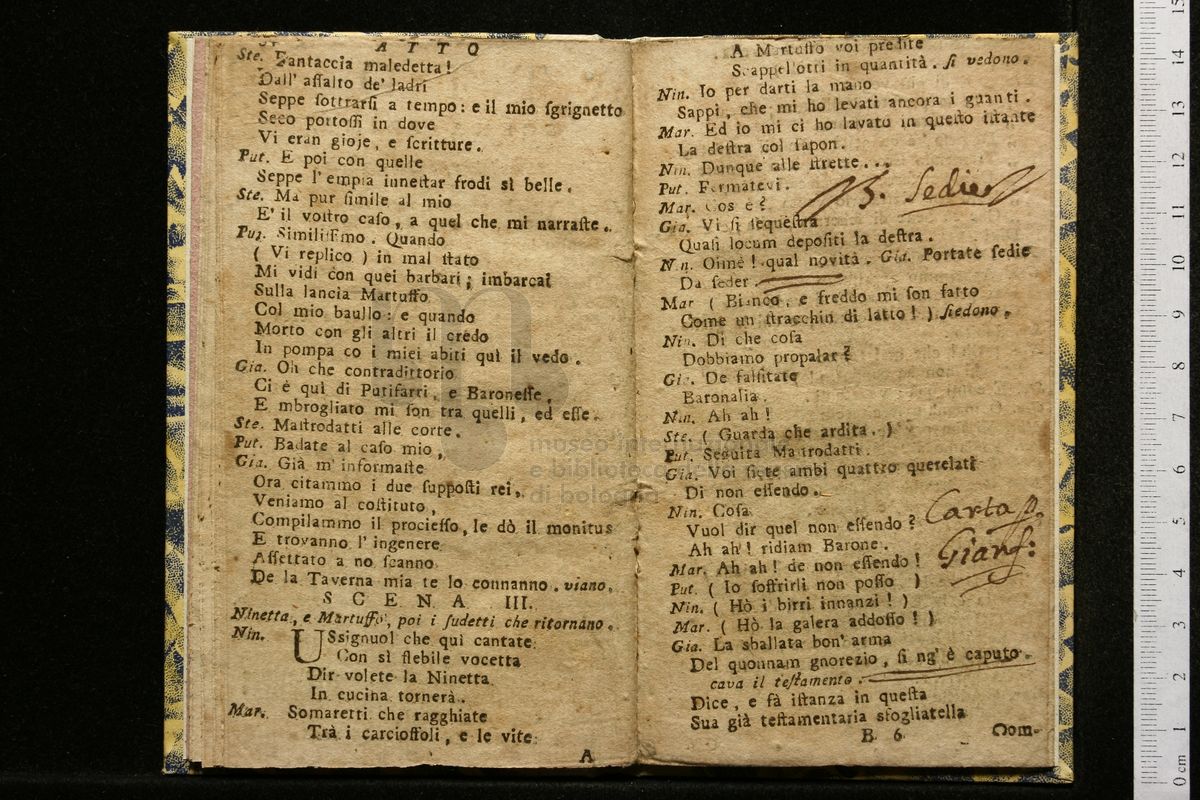 ATTO
Ste. Fantaccia maledetta!
Dall' assalto de' ladri
Seppe sottrarsi a tempo: e il mio sgrignetto
Seco portossi in dove
Vi eran gioje, e scritture.
Put. E poi con quelle
Seppe l'empia innestar frodi sì belle.
Ste. Ma pur simile al mio
E' il vostro caso, a quel che mi narraste.
Put. Similissimo. Quando
( Vi replico ) in mal stato
Mi vidi con quei barbari; imbarcai
Sulla lancia Martuffo
Col mio baullo: e quando
Morto con gli altri il credo
In pompa co i miei abiti quì il vedo.
Gia. Oh che contradittorio
Ci è quì di Putifarri, e Baronesse,
E mbrogliato mi son tra quelli, ed esse.
Ste. Mastrodatti alle corte.
Put. Badate al caso mio,
Gia. Già m' informaste
Ora citammo i due supposti rei,
Veniamo al costituto,
Compilammo il prociesso, le dò il monitus
E trovanno l' ingenere
Assettato a no scanno
De la Taverna mia te lo connanno. viano.
SCENA III.
Ninetta, e Martuffo, poi i sudetti che ritornano.
Nin. USsignuol che quì cantate
Con sì flebile vocetta
Dir volete la Ninetta
In cucina tornerà.
Mar. Somaretti che ragghiate
Trà i carcioffoli, e le vite
A
A Martuffo voi predite
Scappellotti in quantità. si vedono.
Nin. Io per darti la mano
Sappi, che mi ho levati ancora i guanti.
Mar. Ed io mi ci ho lavato in questo istante
La destra col sapon.
Nin. Dunque alle strette...
Put. Fermatevi.
3. Sedie
Mar. Cos è?
Gia. Vi si sequestra
Quasi locum depositi la destra.
Nin. Oimè! qual novità. Gia. Portate sedie
Da seder.
Mar ( Bianco, e freddo mi son fatto
Come un stracchin di latto! ) siedono.
Nin. Di che cosa
Dobbiamo propalar?
Gia. De falsitate
Baronalia.
Nin. Ah ah!
Ste. ( Guarda che ardita. )
Put. Seguita Mastrodatti.
Gia. Voi siete ambi quattro querelati
Di non essendo.
Nin. Cosa
Vuol dir quel non essendo?
Carta p.
Ah ah! ridiam Barone.
Gianf:
Mar. Ah ah! de non essendo!
Put. ( Io soffrirli non posso )
Nin. ( Hò i birri innanzi! )
Mar. ( Hò la galera addosso! )
Gia. La sballata bon' arma
Del quonnam gnorezio, si ng' è caputo.
cava il testamento.
Dice, e fà istanza in questa
Sua già testamentaria sfogliatella
B 6
Com-